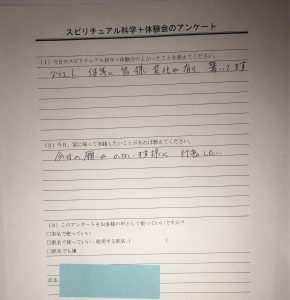 スピリチュアル科学＋体験会のアンケート
（１）今日のスピリチュアル科学＋体験会のよかったことを教えてください。
体 皆様 変化が有り、驚いてます
（２）今日、家に帰って実践したいことがあれば教えてください。
今日の願いが かないます様に 行動したい
（３）このアンケートをお客様の声として使っていいですか？
□実名で使っていい
□匿名で使っていい：使用する匿名（　　　　　　）
□匿名でも嫌
氏名